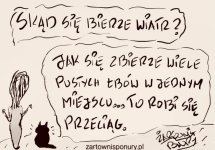 SKĄD SIĘ BIERZE WIATR?
JAK SIĘ ZBIERZE WIELE
PUSTYCH ŁBÓW W JEDNYM
MIEJSCU... TO ROBI SIĘ
PRZECIĄG.
zartownisponury.pl